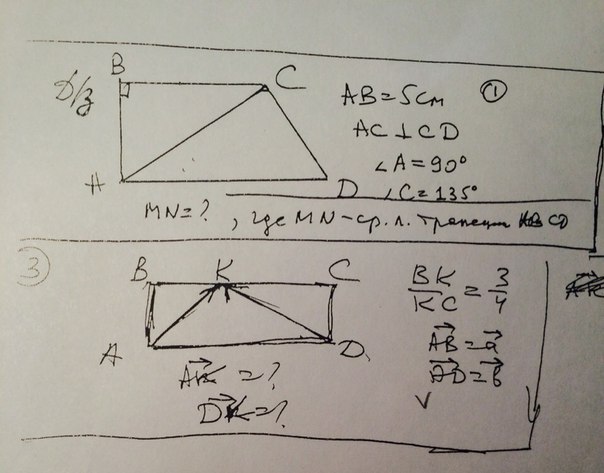 Д/з
B
C
A
D
AB = 5 см
①
AC ⊥ CD
∠A = 90°
∠C = 135°
MN = ? , где MN – ср. л. трапеции ABCD
③
B K C
A D
BK/KC = 3/4
AB = a
AD = b
AK = ?
DK = ?